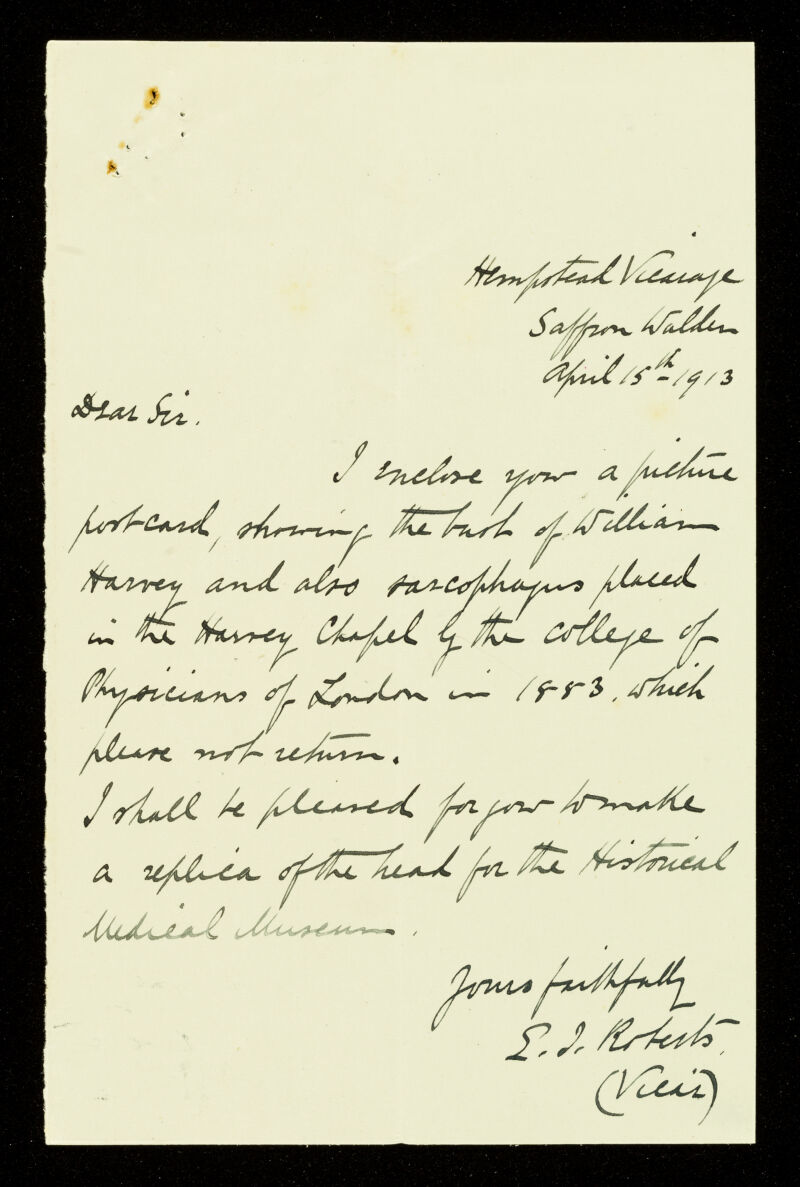 Hempstead Vicarage
Saffron Walden
April 15th - 1913
Dear Sir.
I enclose you a picture
postcard, showing the bust of William
Harvey and also sarcophagus placed
in the Harvey Chapel by the College of
Physicians of London in 1883. which
please not return.
I shall be pleased for you to make
a replica of the head for the Historical
Medical Museum.
Yours faithfully
E. J. Roberts.
(Vicar)